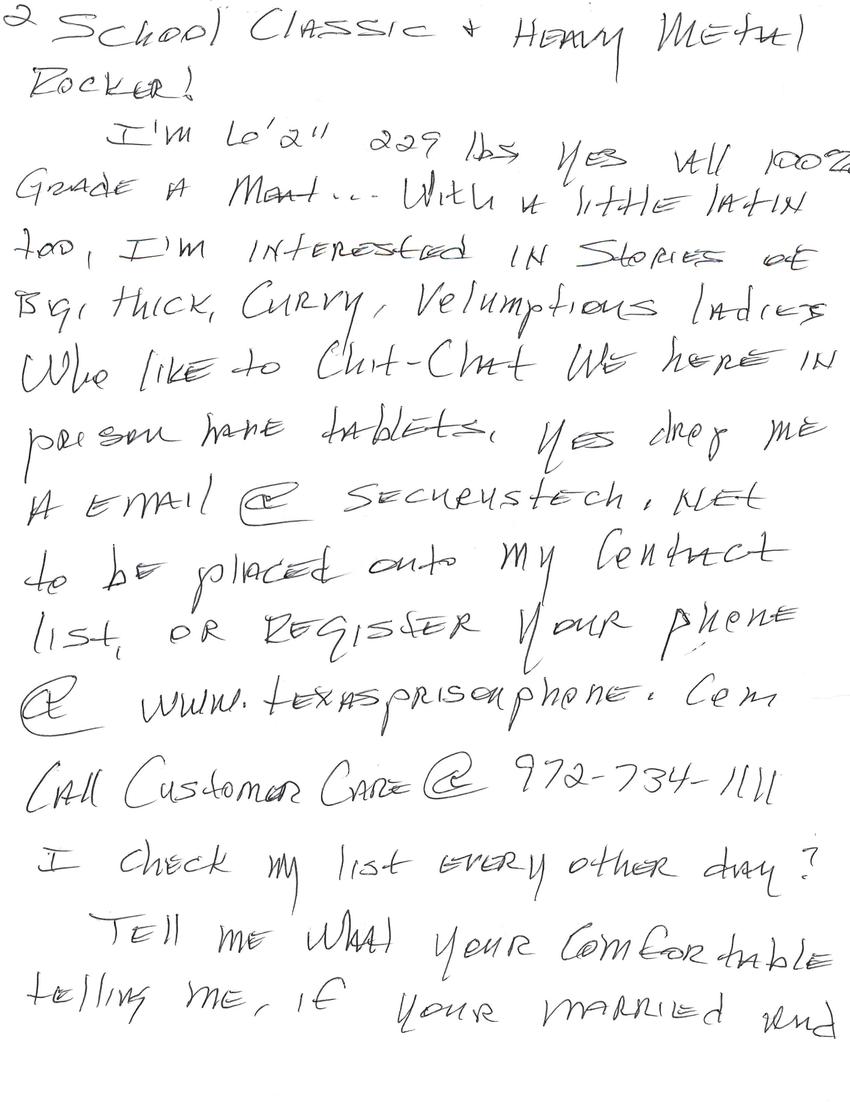 2 School Classic + Heavy Metal
Rocker!
I'm 6'2" 229 lbs yes all 100%
Grade A Meat... With a little latin
too, I'm interested in Stories of
Big, thick, Curvy, Velumptious ladies
Who like to Chit-Chat We here in
prison have tablets, yes drop me
A email @ securustech.net
to be placed onto my Contact
list, or Register your phone
@ www.texasprisonphone.com
Call Customer Care @ 972-734-1111
I check my list every other day?
Tell me what your comfortable
telling me, if your married and